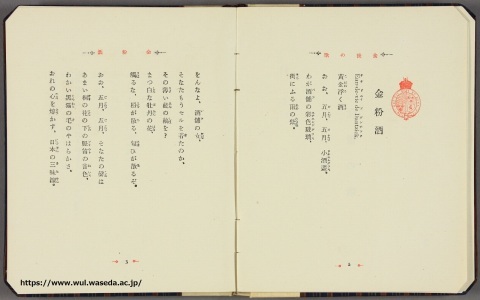 金粉酒
Eau-de-vie de Dantzick.
黄金浮く酒、
おお、五月、五月、小酒盞、
わが酒舗の彩色玻璃、
街にふる雨の紫。
2
をんなよ、酒舗の女、
そなたもうセルを着たのか、
その薄い藍の縞を?
まつ白な牡丹の花、
觸るな、粉が散る、匂ひが散るぞ。
おお、五月、五月、そなたの聲は
あまい桐の花の下の竪笛の音色、
わかい黒猫の毛のやはらかさ、
おれの心を熔かす、日本の三味線。
3
https://www.wul.waseda.ac.jp/